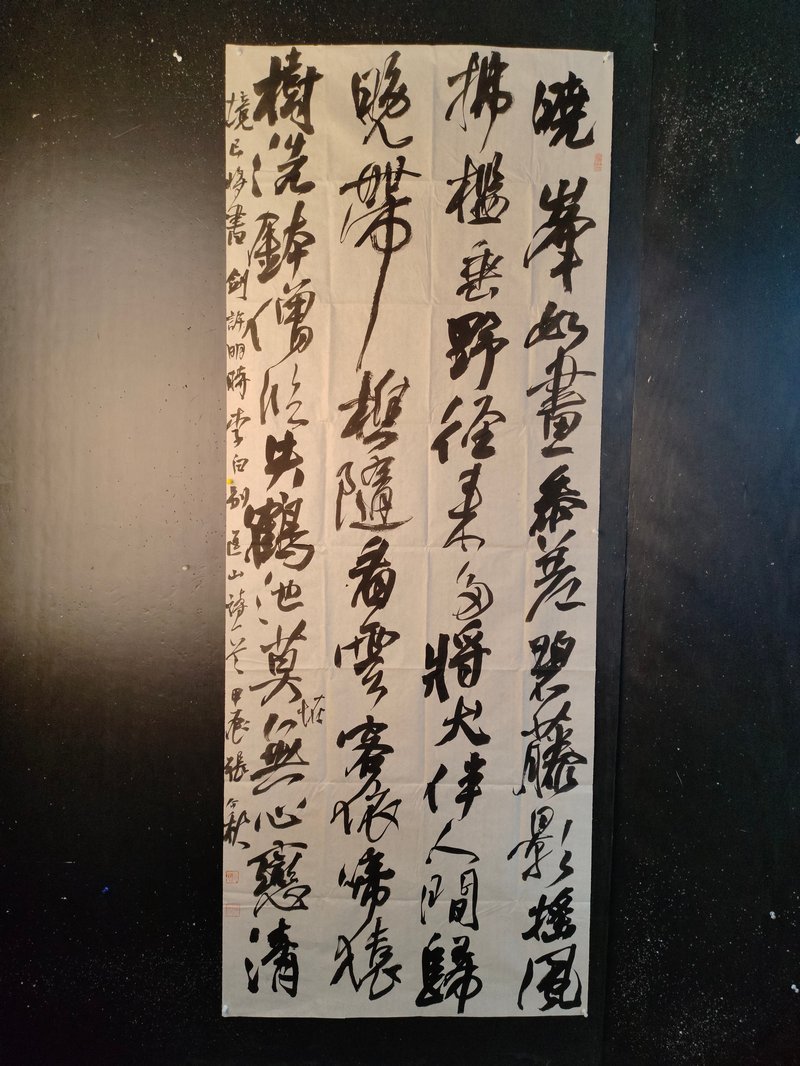 曉峯如畫參差碧藤影搖風
拂檻垂野徑來多將犬伴人間歸
晚帶樵隨看雲客依啼猿
樹洗鉢僧临失鶴池莫怪無心戀清
境已將書劍許明時李白別匡山詩一首甲辰張